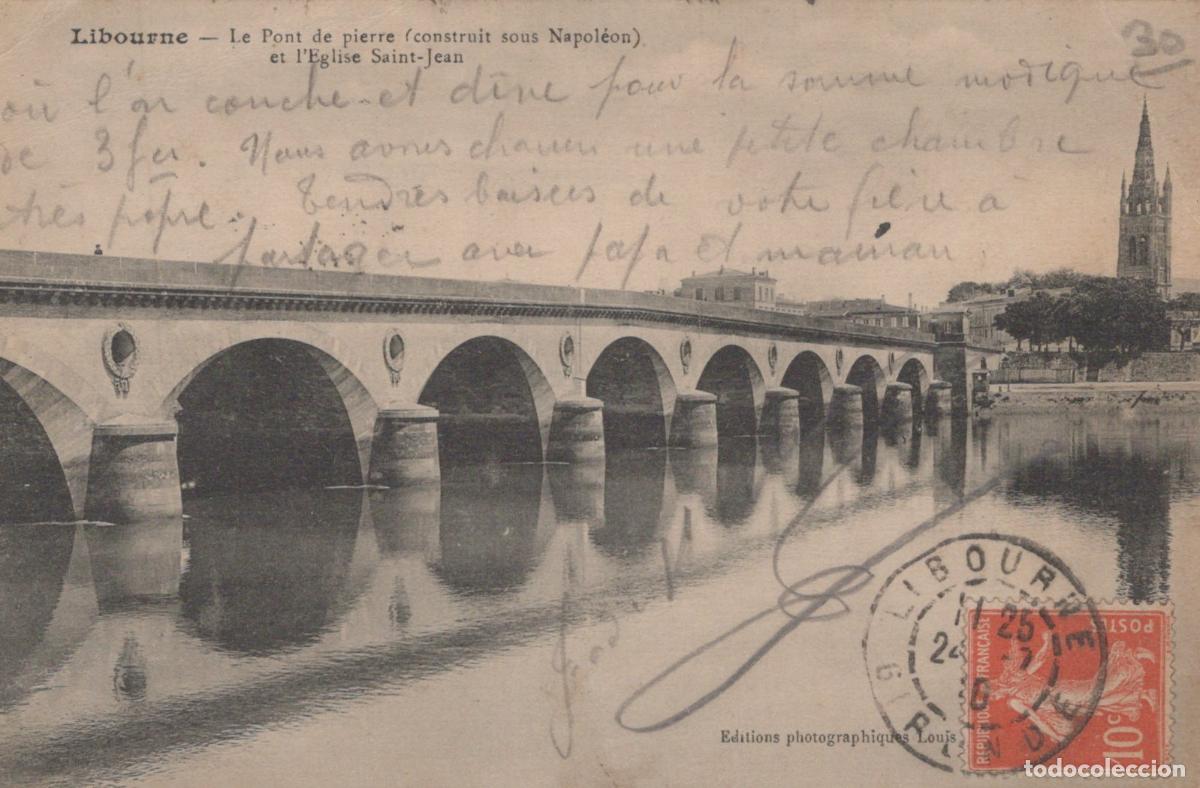 Libourne — Le Pont de pierre (construit sous Napoléon)
et l'Eglise Saint-Jean
30
où l'on couche et dîne pour la somme modique
de 3 fer. Nous avons chacun une petite chambre
très propre. Tendres baisers de votre frère à
partager avec papa et maman
LIBOURNE
11 25
24 - 7
10
GIRONDE
REPUBLIQUE FRANÇAISE
POSTES
10c
Editions photographiques Louis
todocoleccion